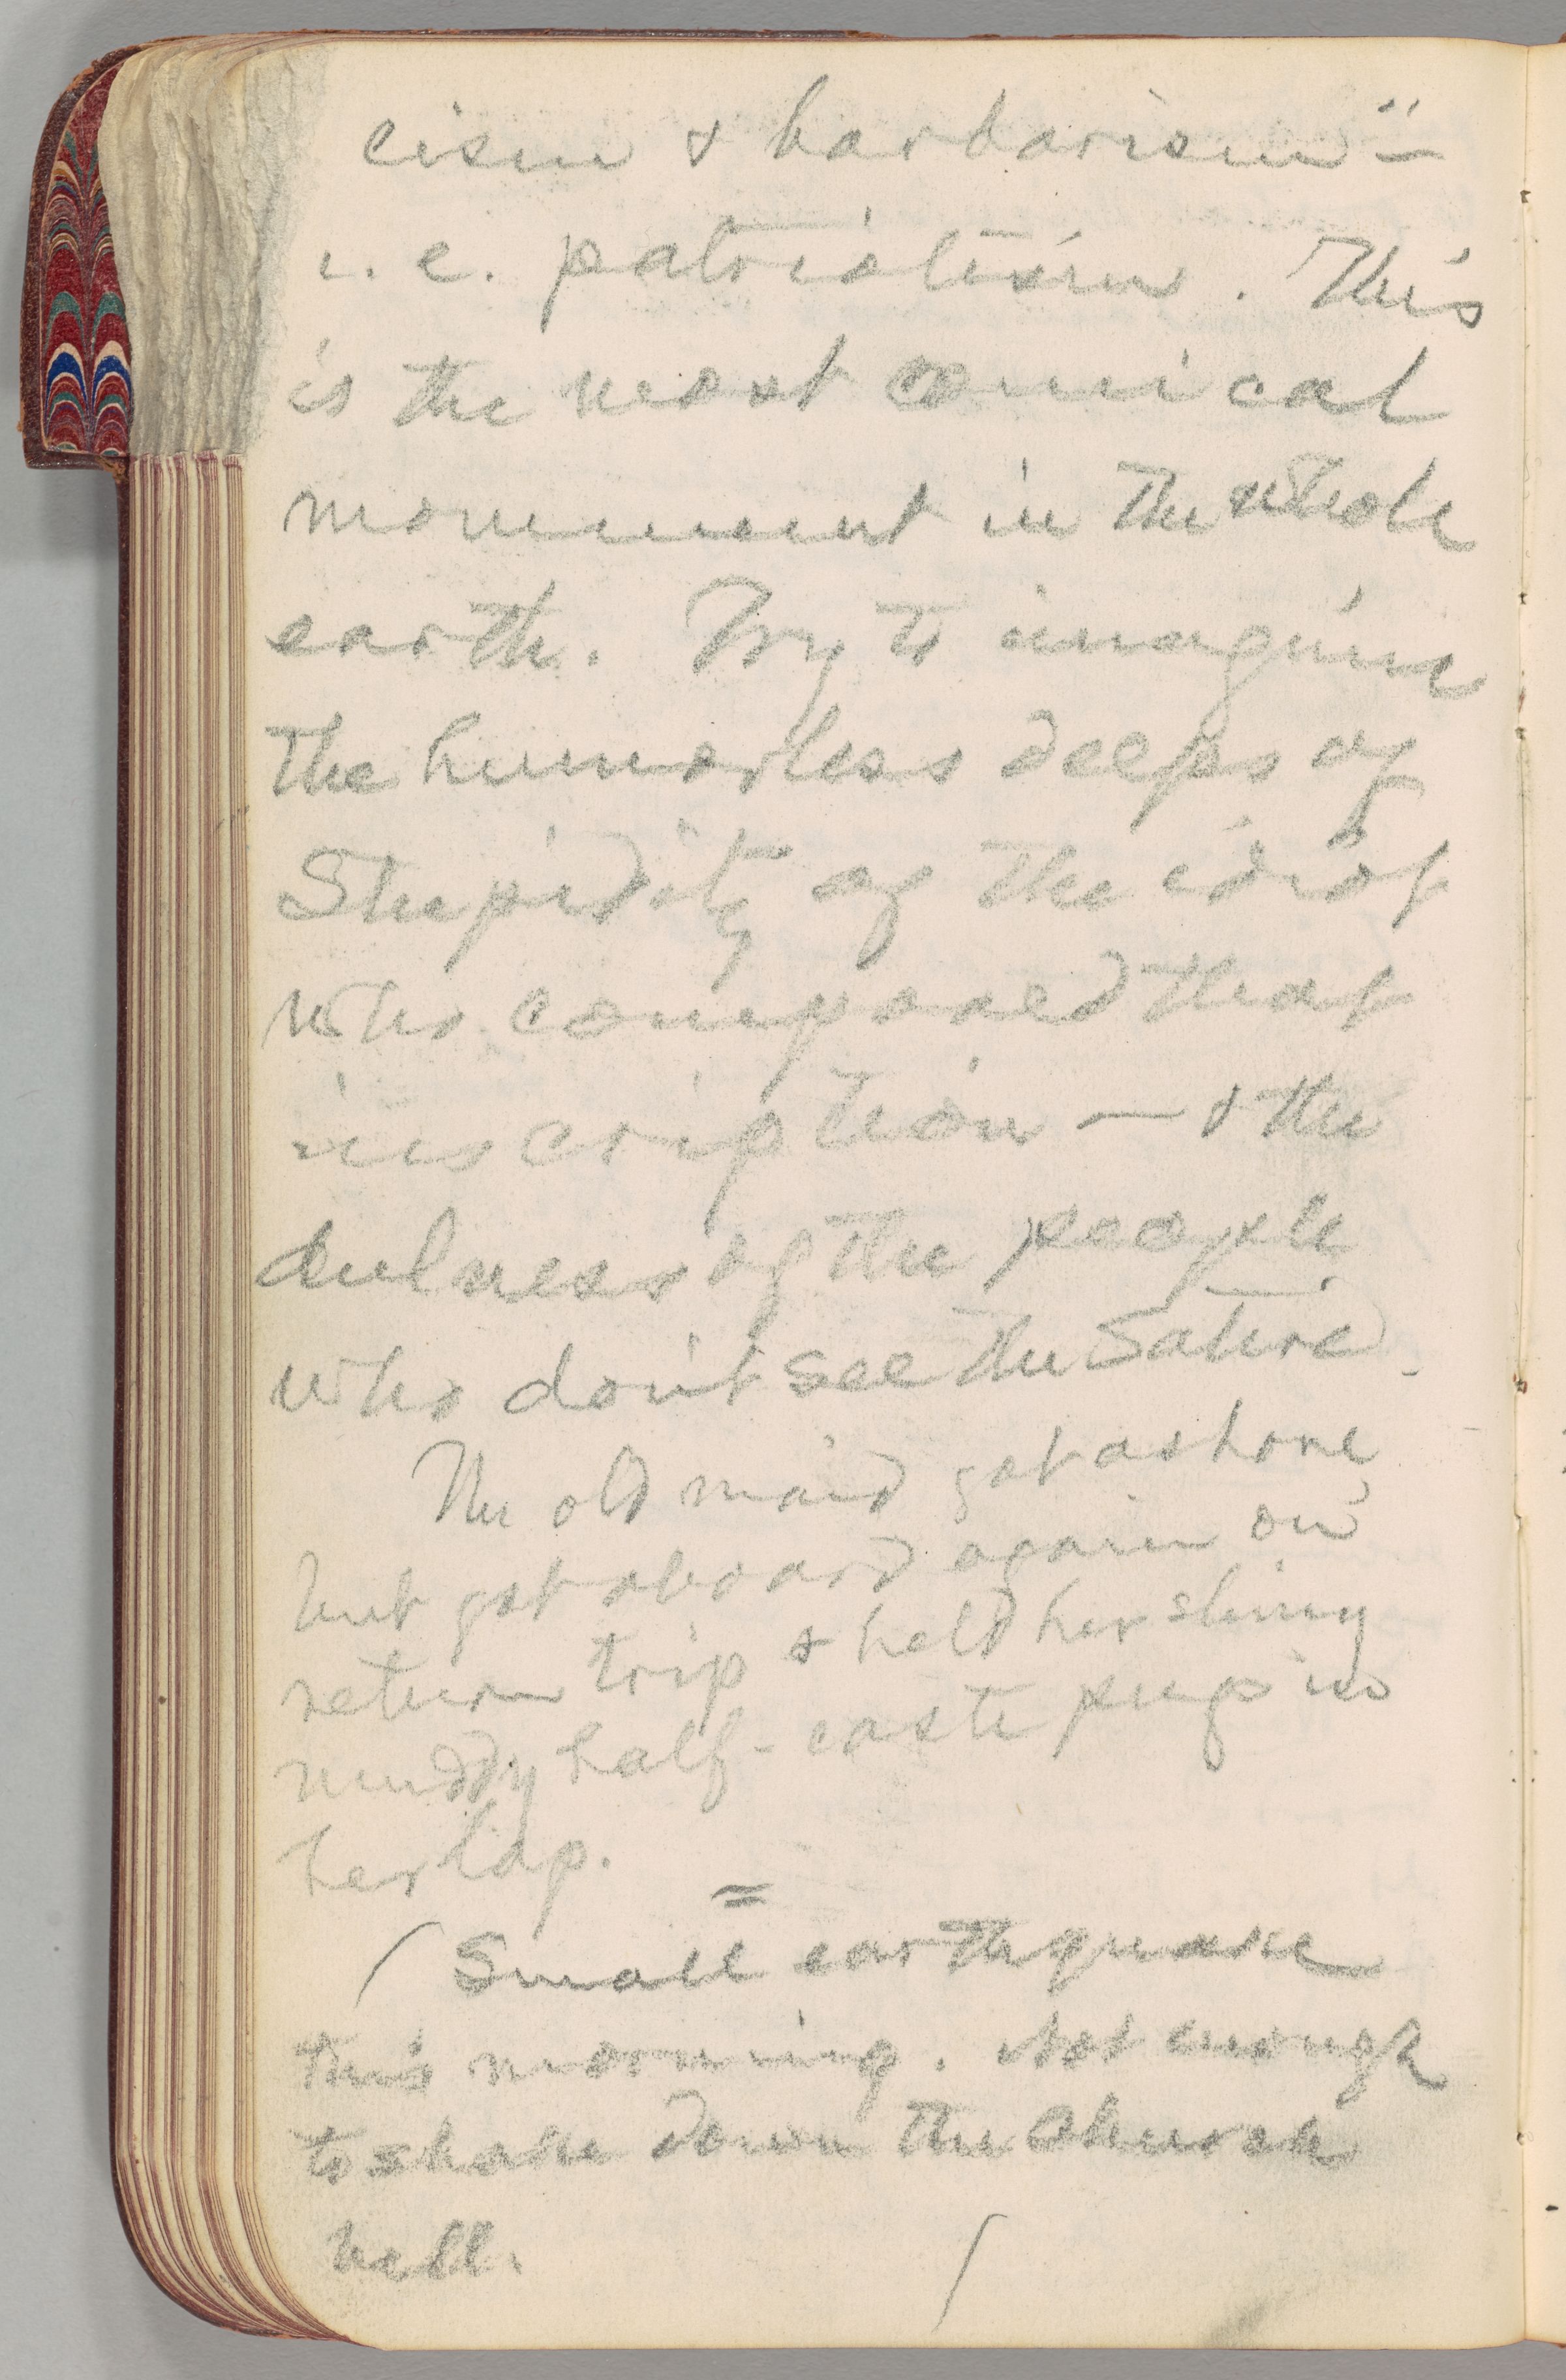 cism & barbarism" —
i. e. patriotism. This
is the most comical
monument in the whole
earth. Try to imagine
the humorless deeps of
Stupidity of the idiot
who composed that
inscription — & the
dulness of the people
who don't see the Satire.
The old maid got ashore
but got aboard again on
return trip & held her slimy
muddy half-caste pup in
her lap.
=
/ Small earthquake
this morning. Not enough
to shake down the church
bell. /